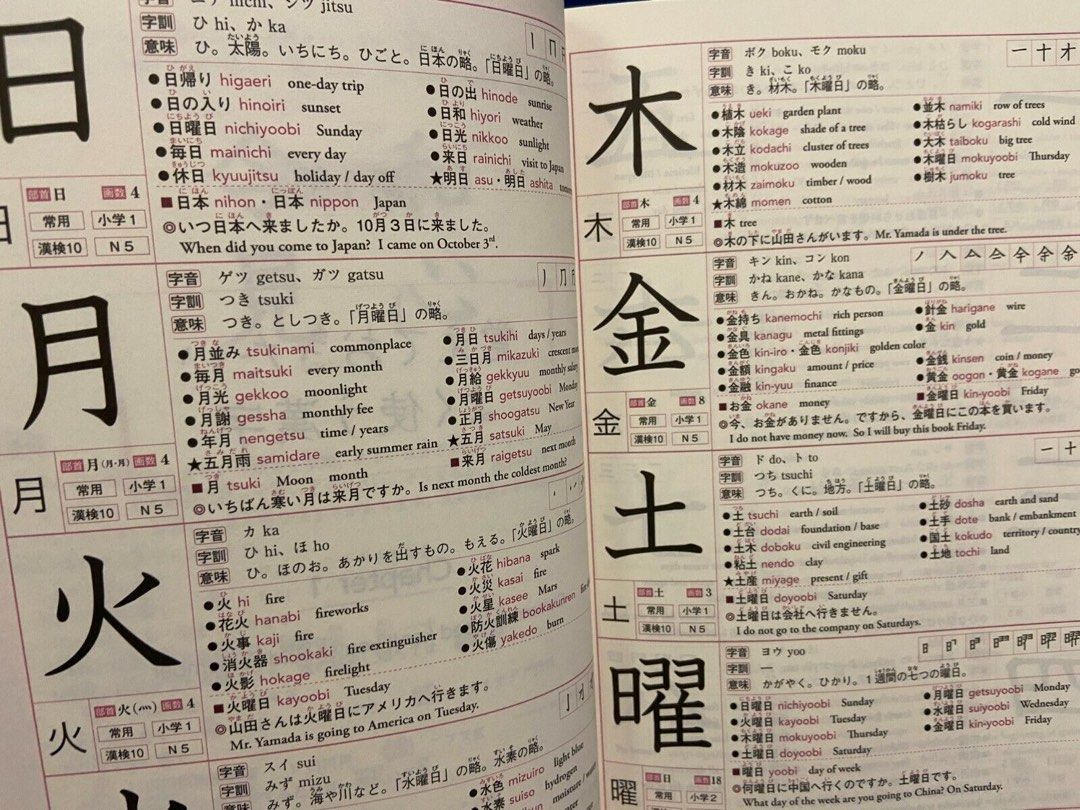 日
字音 ニチ nichi、ジツ jitsu
字訓 ひ hi、か ka
意味 ひ。太陽。いちにち。ひごと。日本の略。「日曜日」の略。
●日帰り higaeri one-day trip
●日の入り hinoiri sunset
●日曜日 nichiyoobi Sunday
●毎日 mainichi every day
●休日 kyuujitsu holiday / day off
●日の出 hinode sunrise
●日和 hiyori weather
●日光 nikkoo sunlight
●来日 rainichi visit to Japan
★明日 asu・明日 ashita
■日本 nihon・日本 nippon Japan
◎いつ日本へ来ましたか。10月3日に来ました。
When did you come to Japan? I came on October 3rd.
部首 日 画数 4
常用 小学1
漢検10 N5
月
字音 ゲツ getsu、ガツ gatsu
字訓 つき tsuki
意味 つき。としつき。「月曜日」の略。
●月並み tsukinami commonplace
●毎月 maitsuki every month
●月光 gekkoo moonlight
●月謝 gessha monthly fee
●年月 nengetsu time / years
★五月雨 samidare early summer rain
●月日 tsukihi days / years
●三日月 mikazuki crescent
●月給 gekkyuu monthly salary
●月曜日 getsuyoobi Monday
●正月 shoogatsu New Year
★五月 satsuki May
■月 tsuki Moon month
■来月 raigetsu next month
◎いちばん寒い月は来月ですか。Is next month the coldest month?
部首 月(月・月) 画数 4
月
常用 小学1
漢検10 N5
火
字音 カ ka
字訓 ひ hi、ほ ho
意味 ひ。ほのお。あかりを出すもの。もえる。「火曜日」の略。
●火 hi fire
●花火 hanabi fireworks
●火事 kaji fire
●消火器 shookaki fire extinguisher
●火影 hokage firelight
●火花 hibana spark
●火災 kasai fire
●火星 kasee Mars
●防火訓練 bookakunren
●火傷 yakedo burn
■火曜日 kayoobi Tuesday
◎山田さんは火曜日にアメリカへ行きます。
Mr. Yamada is going to America on Tuesday.
部首 火(灬) 画数 4
火
常用 小学1
漢検10 N5
字音 スイ sui
字訓 みず mizu
意味 みず。海や川など。「水曜日」の略。水素の略。
●水色 mizuiro light blue
水素 suiso hydrogen
moisture
木
字音 ボク boku、モク moku
字訓 き ki、こ ko
意味 き。材木。「木曜日」の略。
●植木 ueki garden plant
●木陰 kokage shade of a tree
●木立 kodachi cluster of trees
●木造 mokuzoo wooden
●材木 zaimoku timber / wood
★木綿 momen cotton
●並木 namiki row of trees
●木枯らし kogarashi cold wind
●大木 taiboku big tree
●木曜日 mokuyoobi Thursday
●樹木 jumoku tree
■木 tree
◎木の下に山田さんがいます。Mr. Yamada is under the tree.
部首 木 画数 4
木
常用 小学1
漢検10 N5
金
字音 キン kin、コン kon
字訓 かね kane、かな kana
意味 きん。おかね。かなもの。「金曜日」の略。
●金持ち kanemochi rich person
●金具 kanagu metal fittings
●金色 kin-iro・金色 konjiki golden color
●金額 kingaku amount / price
●金融 kin-yuu finance
●針金 harigane wire
●金 kin gold
●金銭 kinsen coin / money
●黄金 oogon・黄金 kogane
■お金 okane money
■金曜日 kin-yoobi Friday
◎今、お金がありません。ですから、金曜日にこの本を買います。
I do not have money now. So I will buy this book Friday.
部首 金 画数 8
金
常用 小学1
漢検10 N5
土
字音 ド do、ト to
字訓 つち tsuchi
意味 つち。くに。地方。「土曜日」の略。
●土 tsuchi earth / soil
●土台 dodai foundation / base
●土木 doboku civil engineering
●粘土 nendo clay
★土産 miyage present / gift
●土砂 dosha earth and sand
●土手 dote bank / embankment
●国土 kokudo territory / country
●土地 tochi land
■土曜日 doyoobi Saturday
◎土曜日は会社へ行きません。
I do not go to the company on Saturdays.
部首 土 画数 3
土
常用 小学1
漢検10 N5
曜
字音 ヨウ yoo
字訓 —
意味 かがやく。ひかり。1週間の七つの曜日。
●日曜日 nichiyoobi Sunday
●火曜日 kayoobi Tuesday
●木曜日 mokuyoobi Thursday
●土曜日 doyoobi Saturday
●月曜日 getsuyoobi Monday
●水曜日 suiyoobi Wednesday
●金曜日 kin-yoobi Friday
■曜日 yoobi day of week
◎何曜日に中国へ行くのですか。土曜日です。
What day of the week are you going to China? On Saturday.
部首 日 画数 18
曜
常用 小学2